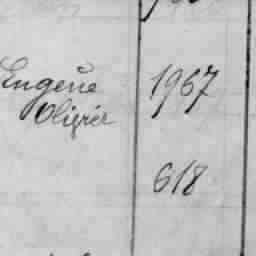 Eugène 1967
Olivier
618